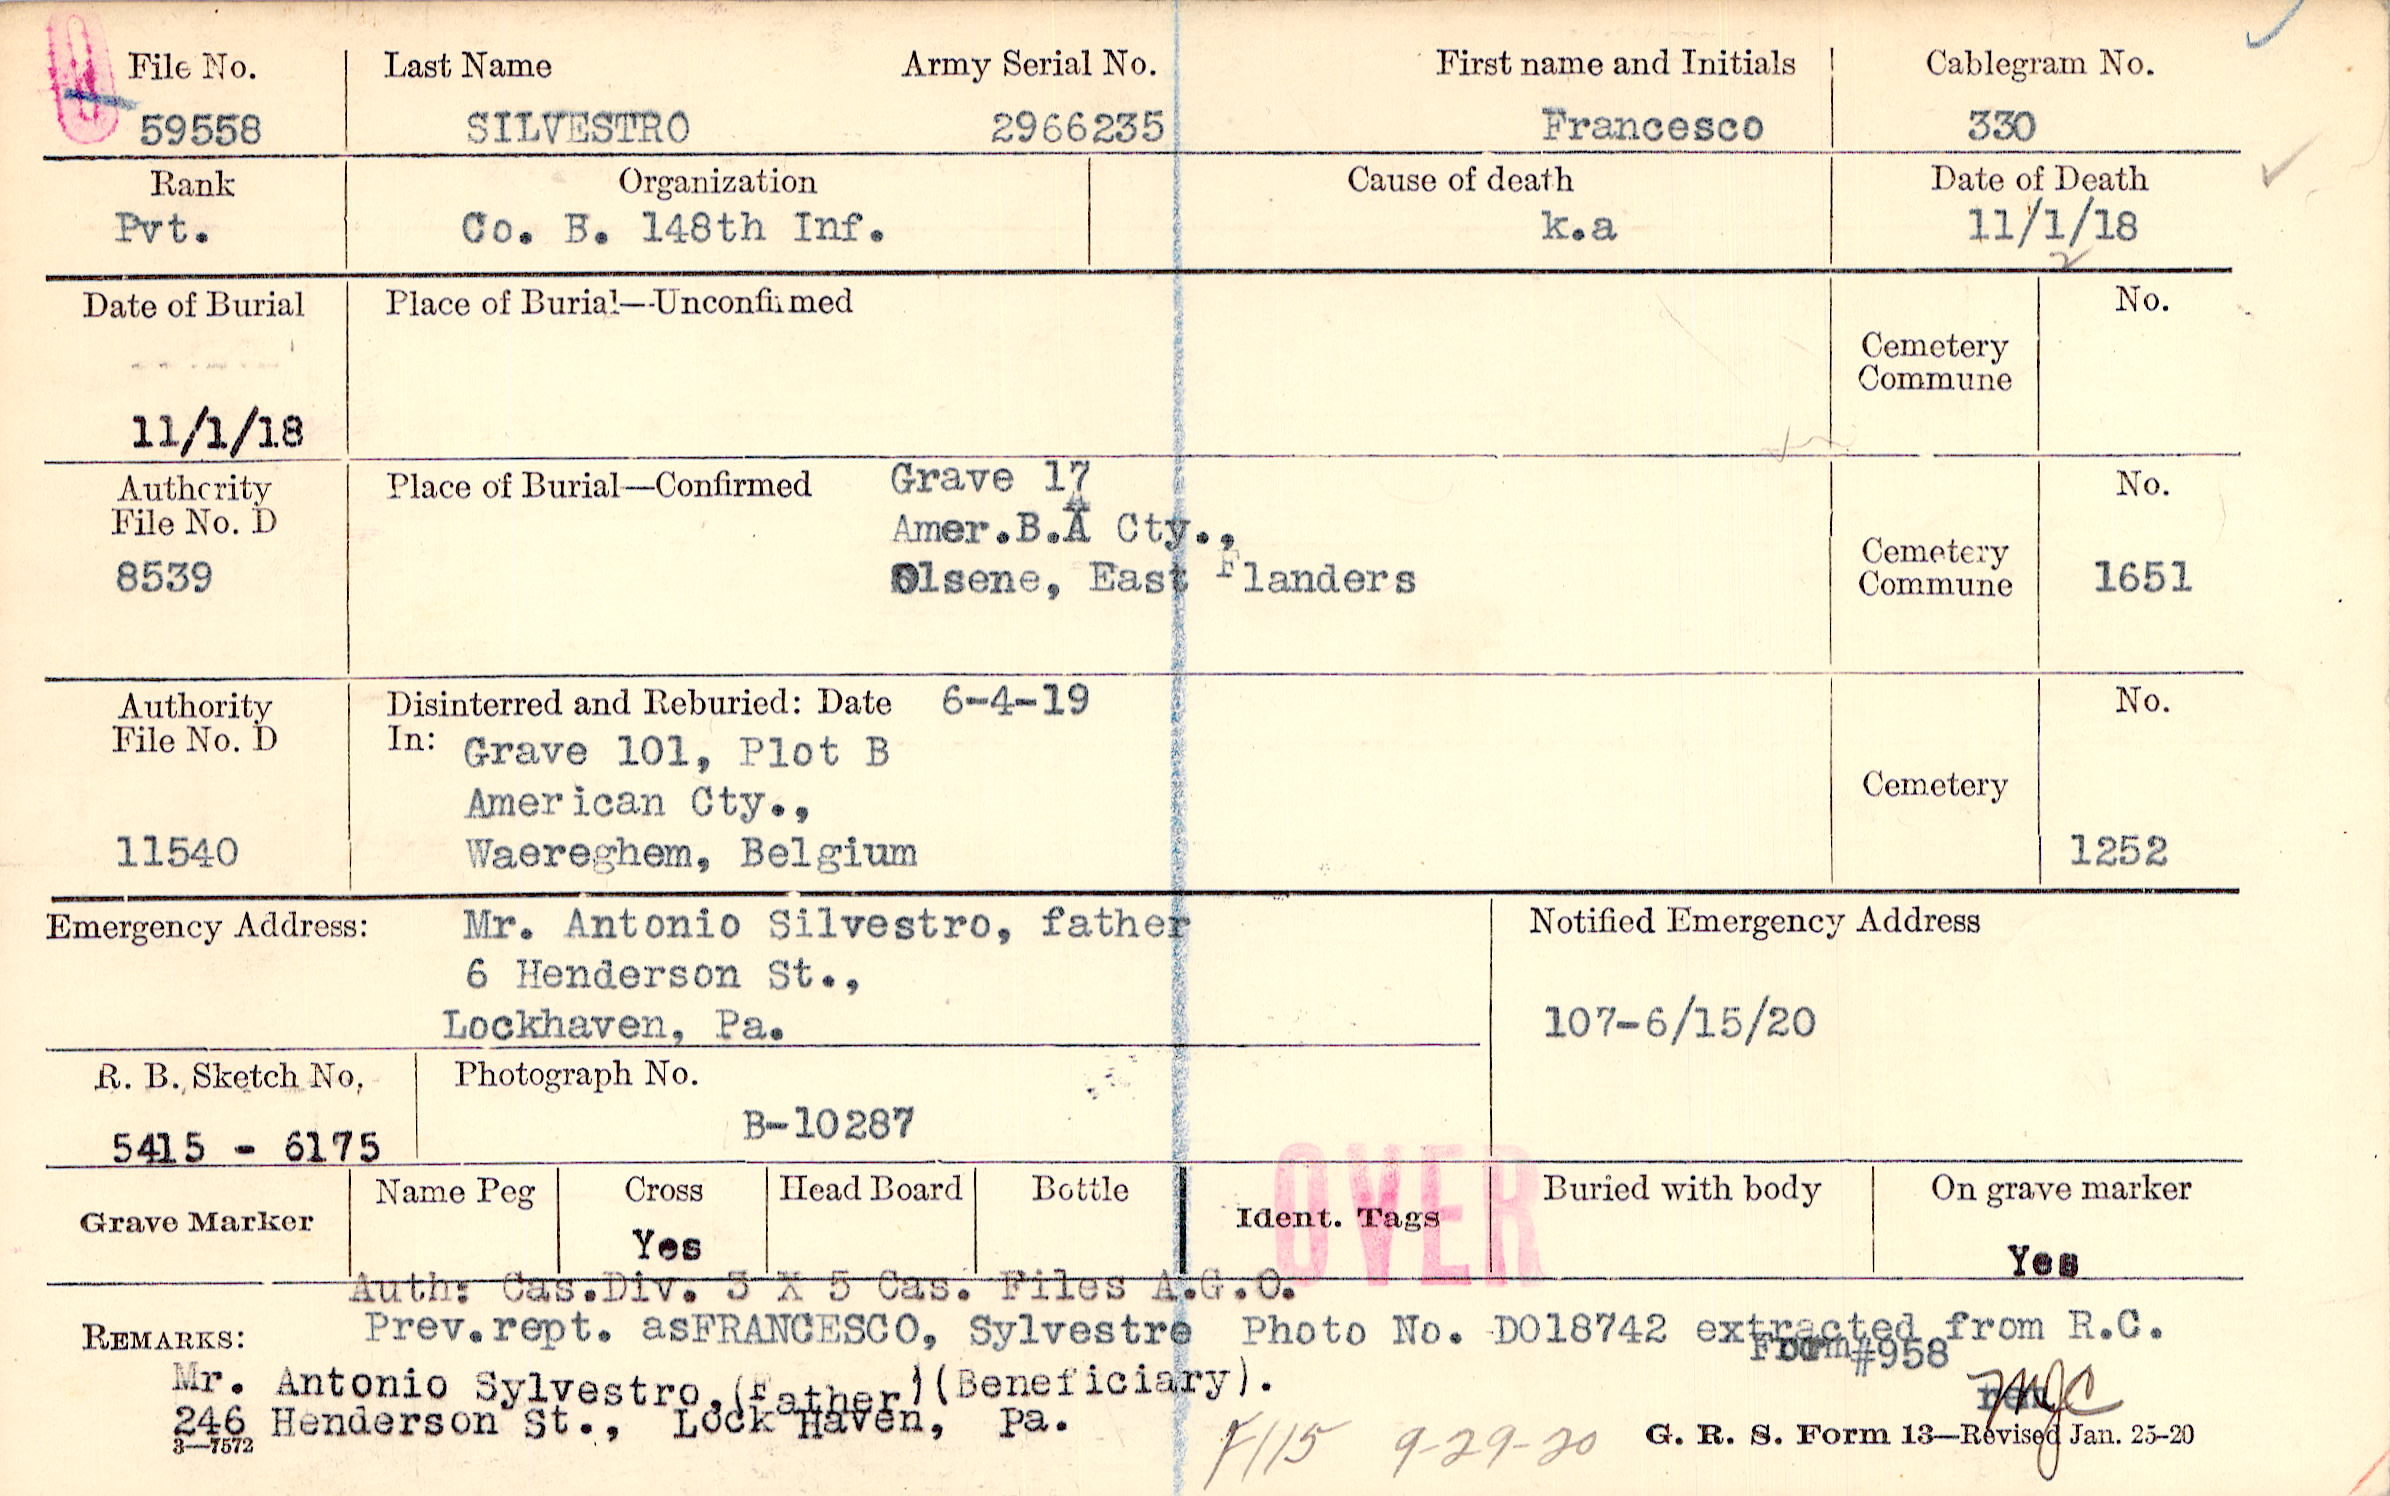 File No. Last Name Army Serial No. First name and Initials Cablegram No.
59558 SILVESTRO 2966235 Francesco 330
Rank Organization Cause of death Date of Death
Pvt. Co. B. 148th Inf. k.a 11/1/18
2
Date of Burial Place of Burial—Unconfirmed No.
Cemetery
Commune
11/1/18
Authority Place of Burial—Confirmed Grave 17 No.
File No. D Amer.B.A Cty.,
8539 Olsene, East Flanders Cemetery
Commune 1651
Authority Disinterred and Reburied: Date 6-4-19 No.
File No. D In: Grave 101, Plot B
American Cty., Cemetery
11540 Waereghem, Belgium 1252
Emergency Address: Mr. Antonio Silvestro, father Notified Emergency Address
6 Henderson St.,
Lockhaven, Pa. 107-6/15/20
R. B. Sketch No. Photograph No.
5415 - 6175 B-10287
OVER
Grave Marker Name Peg Cross Head Board Bottle Ident. Tags Buried with body On grave marker
Yes Yes
Auth: Cas.Div. 3 X 5 Cas. Files A.G.O.
REMARKS: Prev.rept. asFRANCESCO, Sylvestre Photo No. D018742 extracted from R.C.
Form#958
Mr. Antonio Sylvestro,(Father)(Beneficiary).
246 Henderson St., Lock Haven, Pa.
MJC
3—7572 9-29-20 G. R. S. Form 13—Revised Jan. 25-20